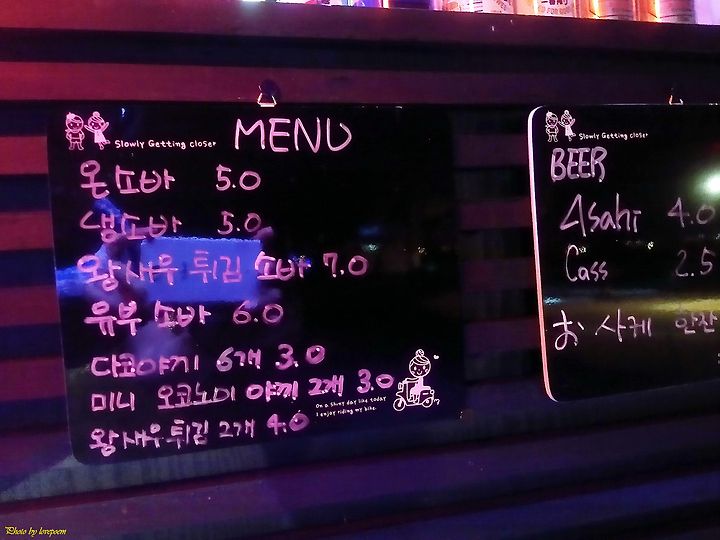 Slowly Getting closer MENU
온소바 5.0
냉소바 5.0
왕새우 튀김 소바 7.0
유부 소바 6.0
다코야끼 6개 3.0
미니 오코노미 야끼 2개 3.0
On a shiny day like today
I enjoy riding my bike.
왕새우튀김 2개 4.0
Slowly Getting closer
BEER
Asahi 4.0
Cass 2.5
お 사케 한잔
Photo by lovepoem